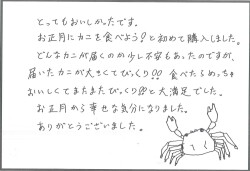 とってもおいしかったです。
お正月にカニを食べよう?と初めて購入しました。
どんなカニが届くのか少し不安もあったのですが、
届いたカニが大きくてびっくり!! 食べたらめっちゃ
おいしくてまたまたびっくり!!と大満足でした。
お正月から幸せな気分になりました。
ありがとうございました。